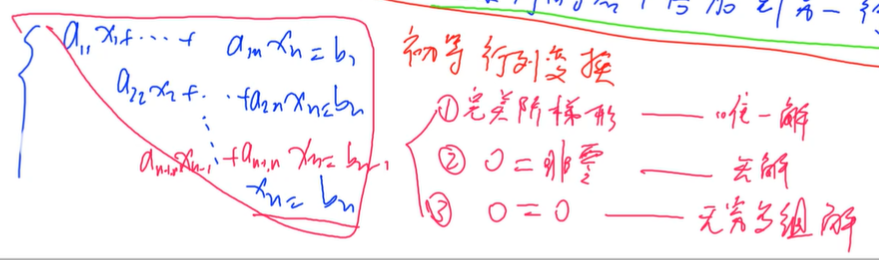 a₁₁x₁+⋯+ a₁ₙxₙ=b₁
a₂₂x₂+⋯+a₂ₙxₙ=bₙ
⋮
aₙ₋₁,ₙ₋₁xₙ₋₁+aₙ₋₁,ₙ xₙ=bₙ₋₁
xₙ=bₙ
初等行列变换
①完美阶梯形 —— 唯一解
② 0=非零 —— 无解
③ 0=0 —— 无穷多组解